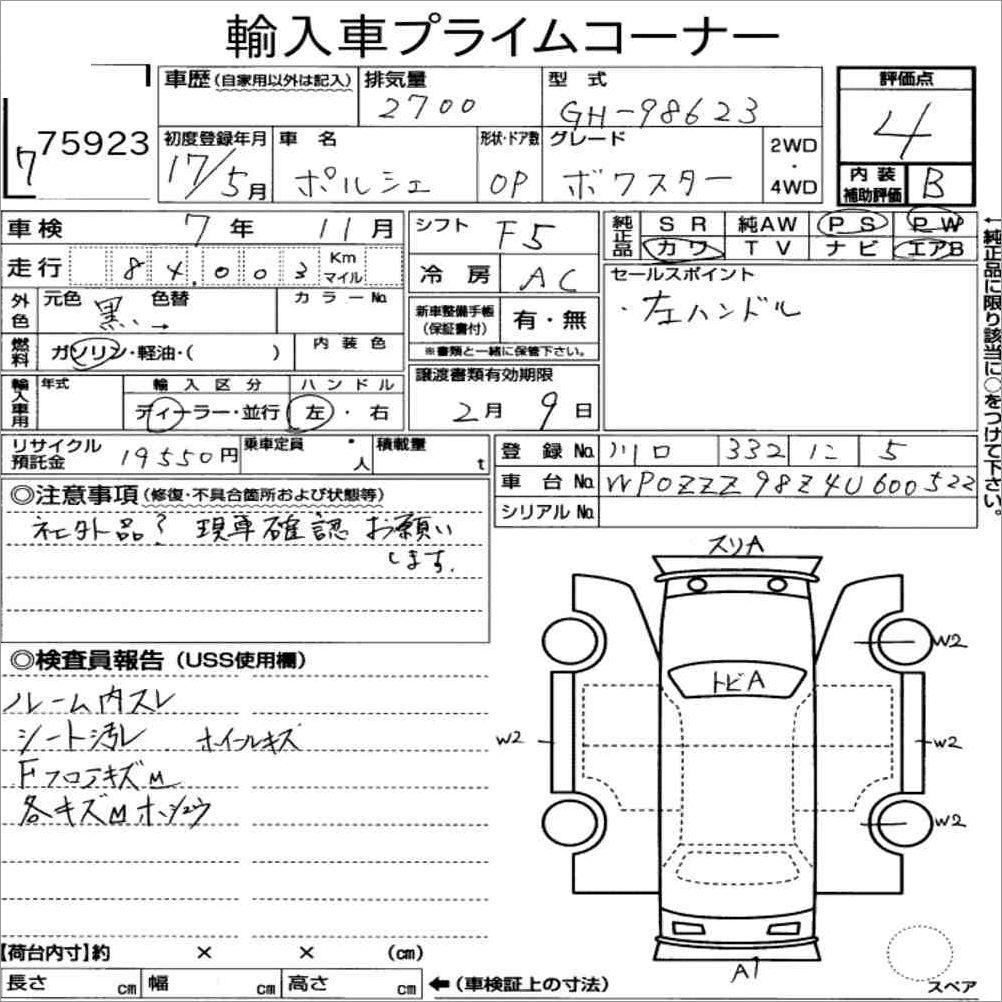 輸入車プライムコーナー
75923
7
車歴(自家用以外は記入)
排気量
2700
型 式
GH-98623
評価点
4
初度登録年月
17/5月
車 名
ポルシェ
形状・ドア数
OP
グレード
ボクスター
2WD
・
4WD
内 装
補助評価
B
車検 7年 11月
走行 84,003 Km マイル
外色
元色 黒 → 色替
カラーNo.
燃料
ガソリン・軽油・( )
内 装 色
輸入車用
年式
輸 入 区 分
ディーラー・並行
ハ ン ド ル
左・右
シフト F5
冷 房 AC
新車整備手帳
(保証書付)
有・無
※書類と一緒に保管下さい。
譲渡書類有効期限
2月 9日
純正品
S R 純AW P S P W
カワ T V ナビ エアB
セールスポイント
・左ハンドル
←純正品に限り該当に○をつけて下さい。
リサイクル
預託金
19550円
乗車定員
人
積載量
t
登 録 No. 川口 332 に 5
車 台 No. WP0ZZZ98Z4U600522
シリアル No.
◎注意事項(修復・不具合箇所および状態等)
社外品? 現車確認 お願い
します.
◎検査員報告(USS使用欄)
ルーム内スレ
シート汚レ ホイールキズ
FフロアキズM
各キズMホシュウ
スリA
トビA
W2
W2
W2
W2
A1
スペア
【荷台内寸】約 × × (cm)
長さ cm 幅 cm 高さ cm ←(車検証上の寸法)